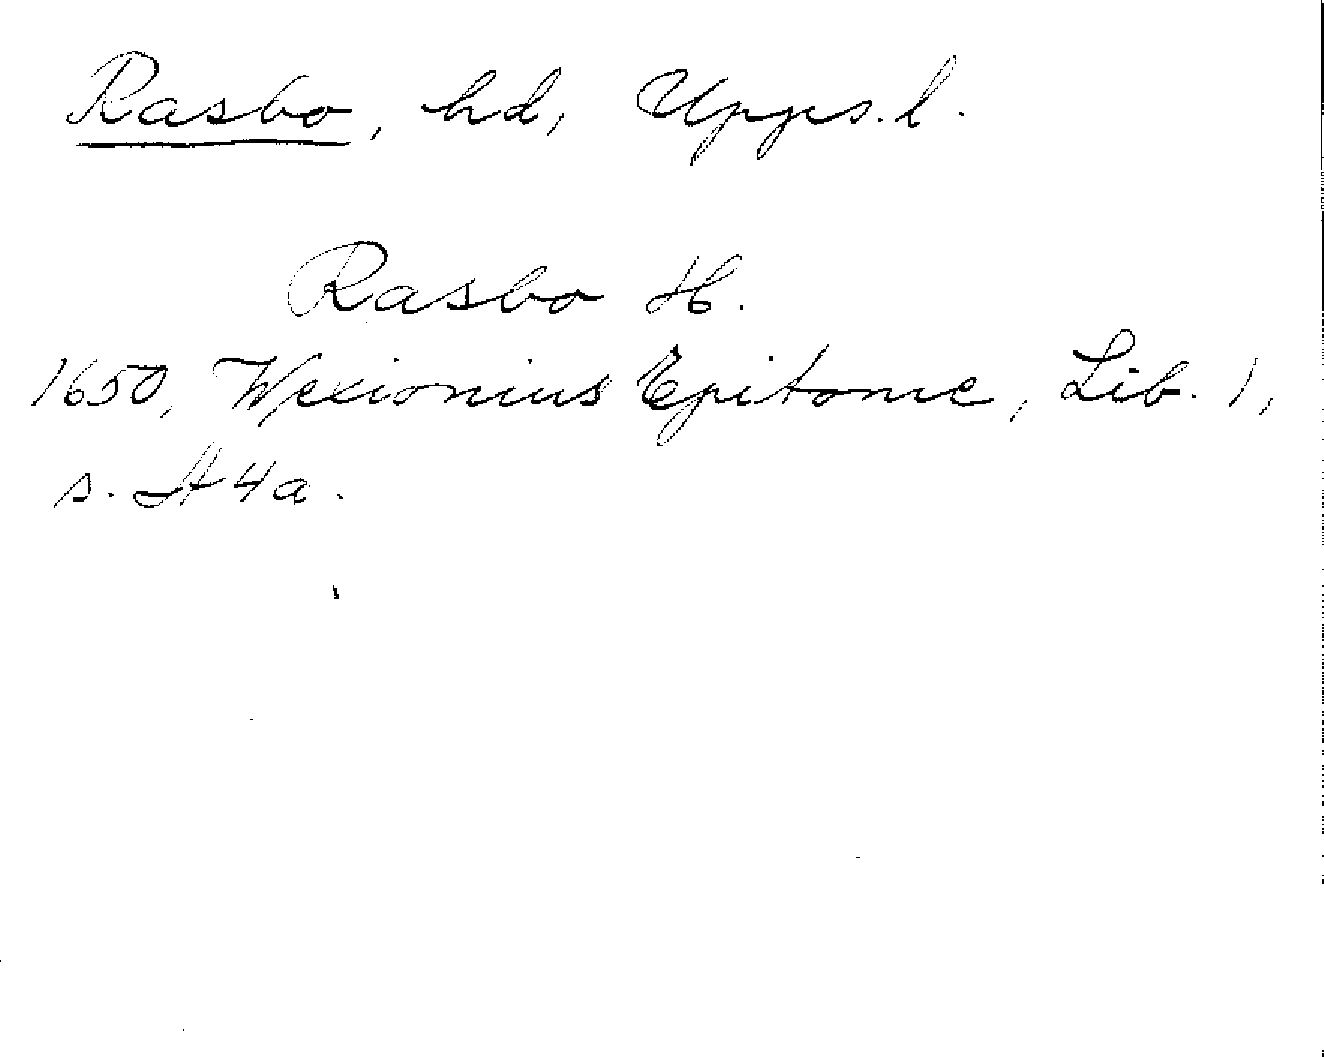 Rasbo, hd, Upps.l.
Rasbo H.
1650, Wexionius Epitome, Lib. 1,
s. A4a.